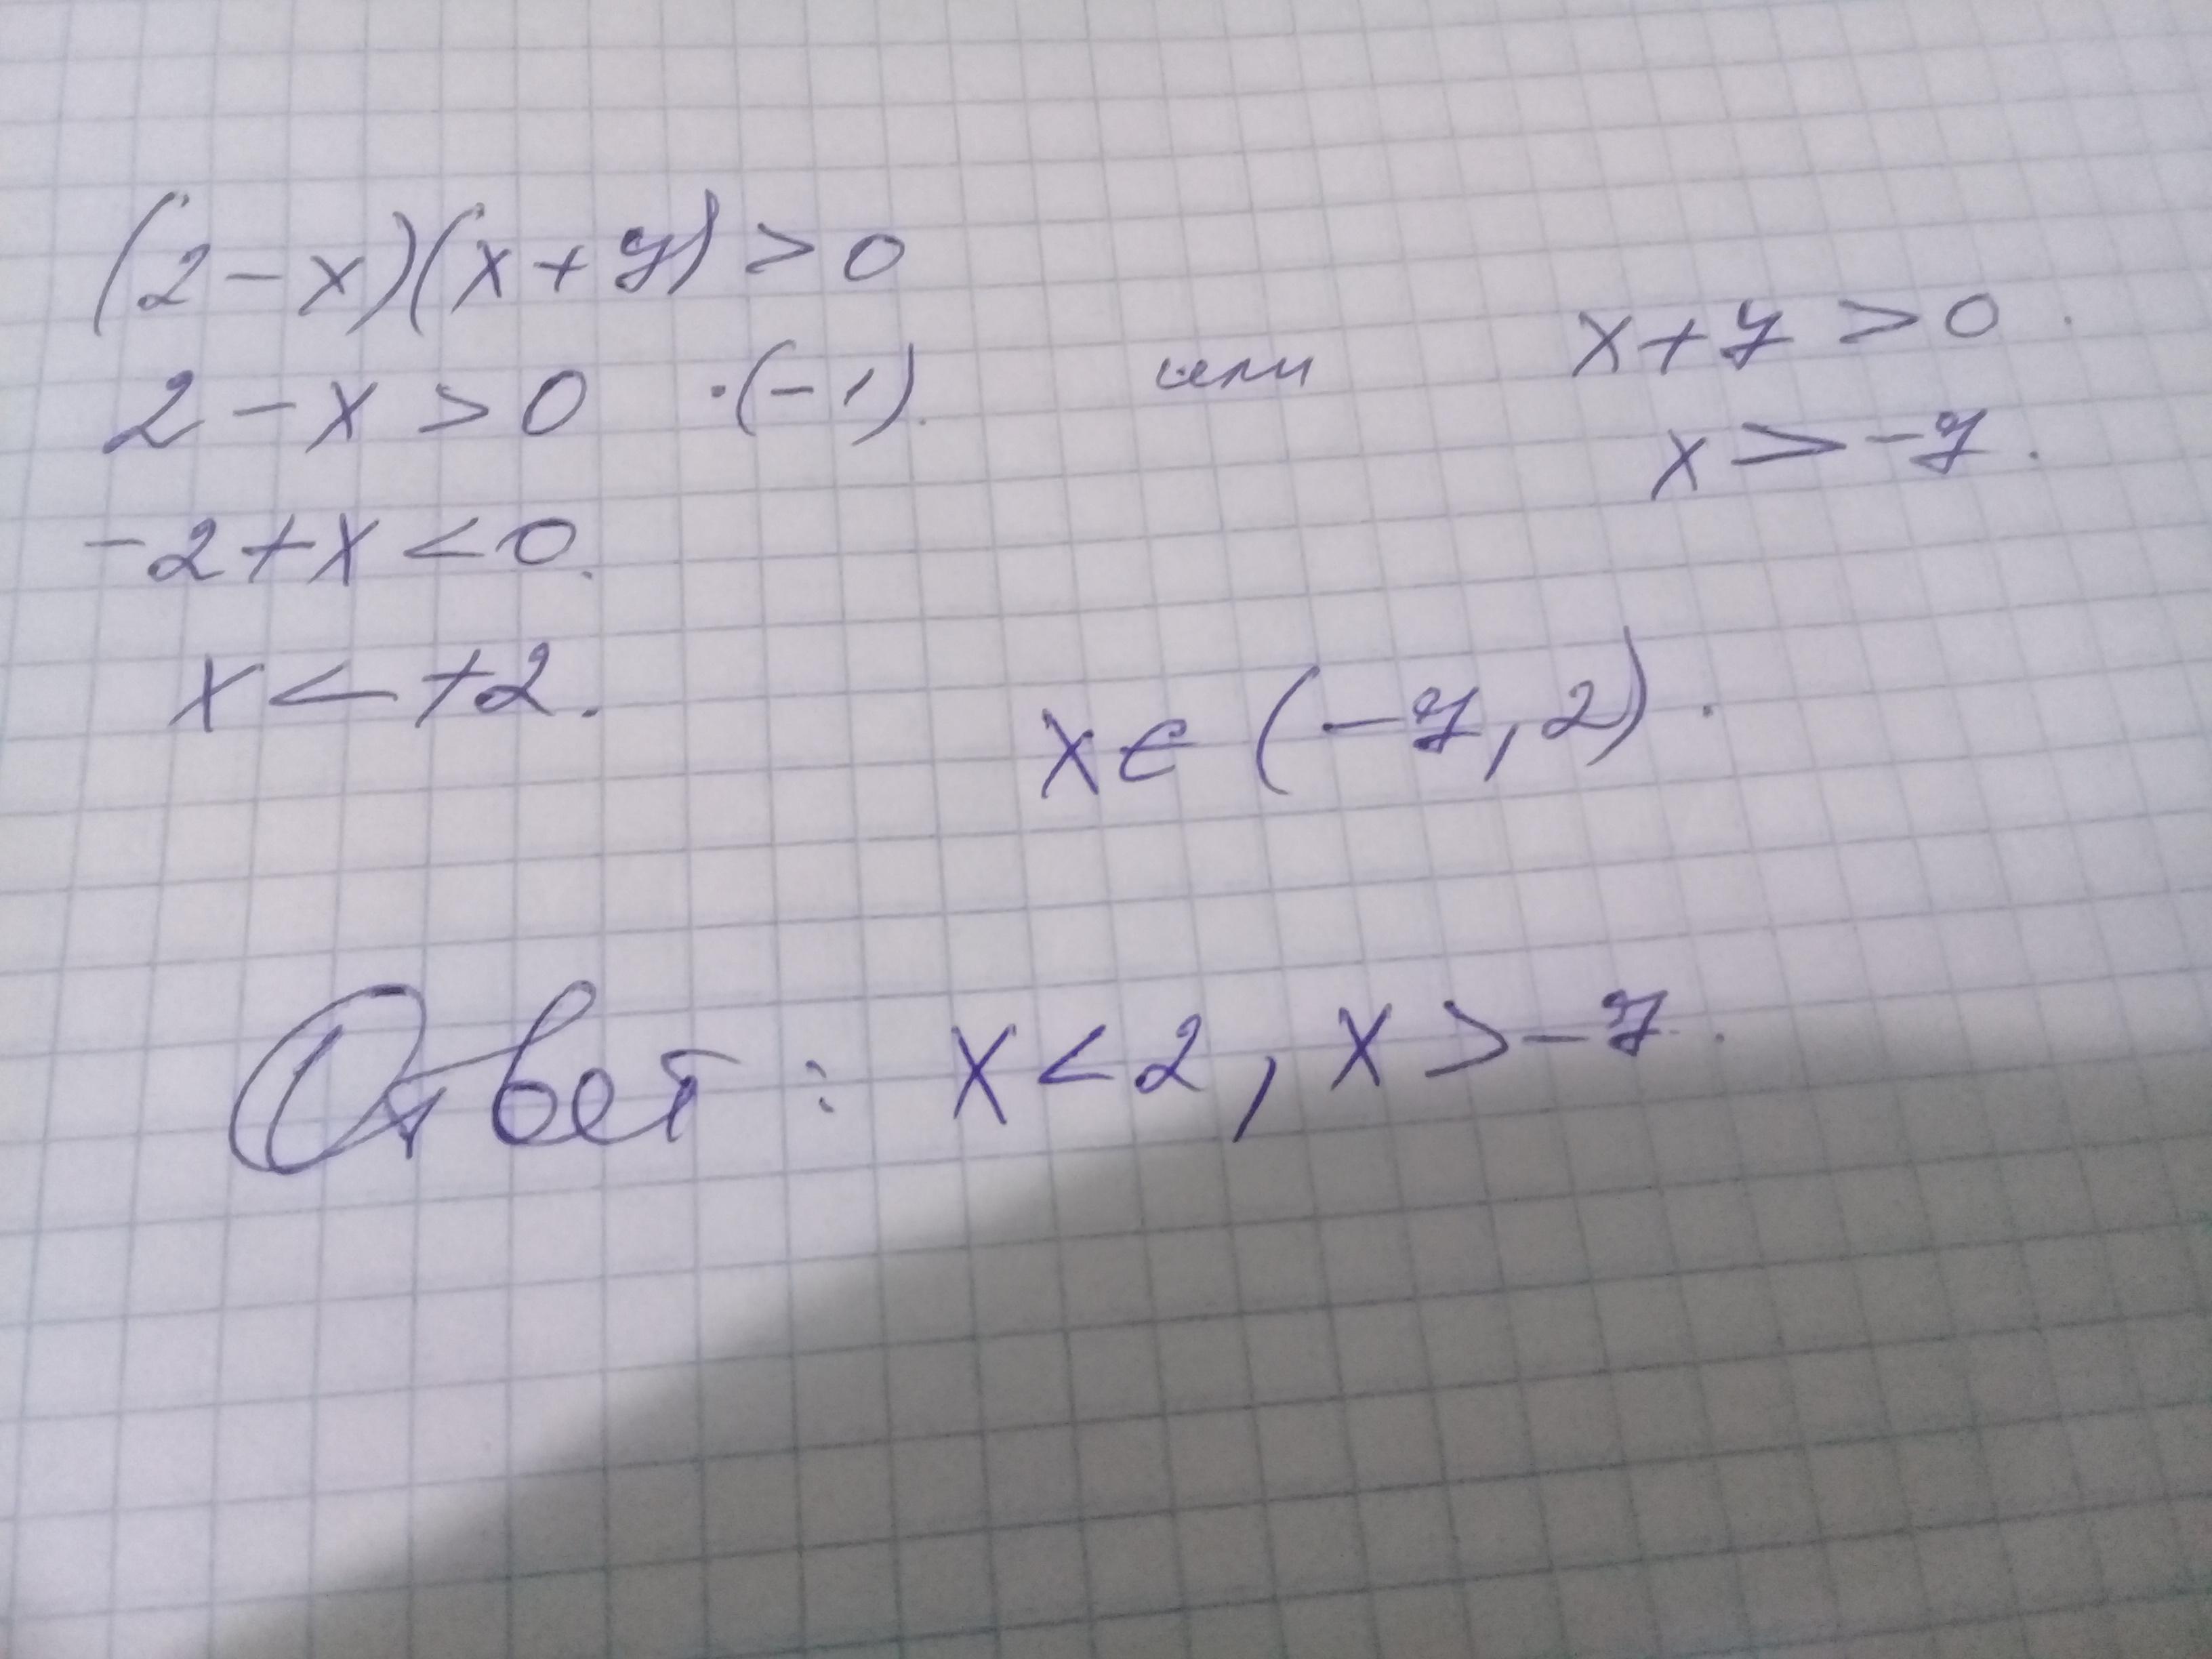 (2-x)(x+7)>0
2-x>0 ·(-1). или x+7>0.
x>-7.
-2+x<0.
x<+2.
x∈(-7,2).
Ответ: x<2, x>-7.